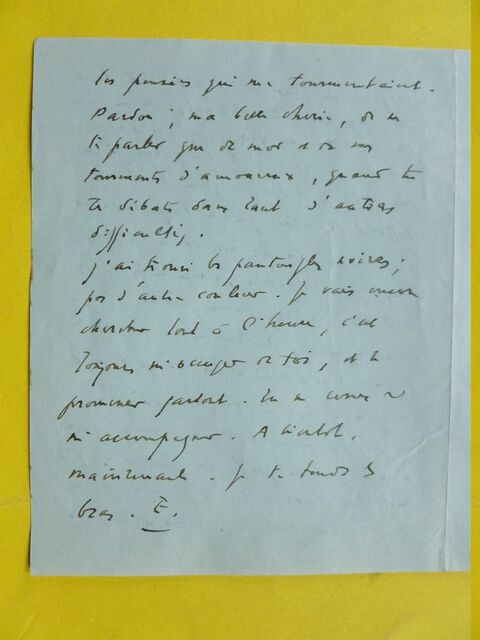 les pensées qui me tourmentaient.
Pardon, ma belle chérie, de ne
te parler que de moi et de mes
tourments d'amoureux, quand tu
te débats dans tant d'autres
difficultés.
j'ai trouvé les pantoufles noires,
pas d'autre couleur. Je vais encore
chercher tout à l'heure, c'est
toujours m'occuper de toi, et te
promener partout. Tu ne cesses de
m'accompagner. A bientôt,
maintenant. Je te tends les
bras. E.